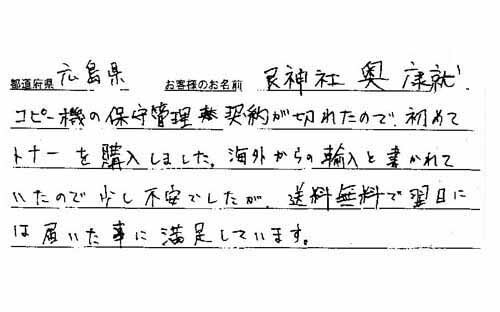 都道府県 広島県 お客様のお名前 艮神社 奥 康就
コピー機の保守管理契約が切れたので、初めて
トナーを購入しました。海外からの輸入と書かれて
いたので少し不安でしたが、送料無料で翌日に
は届いた事に満足しています。